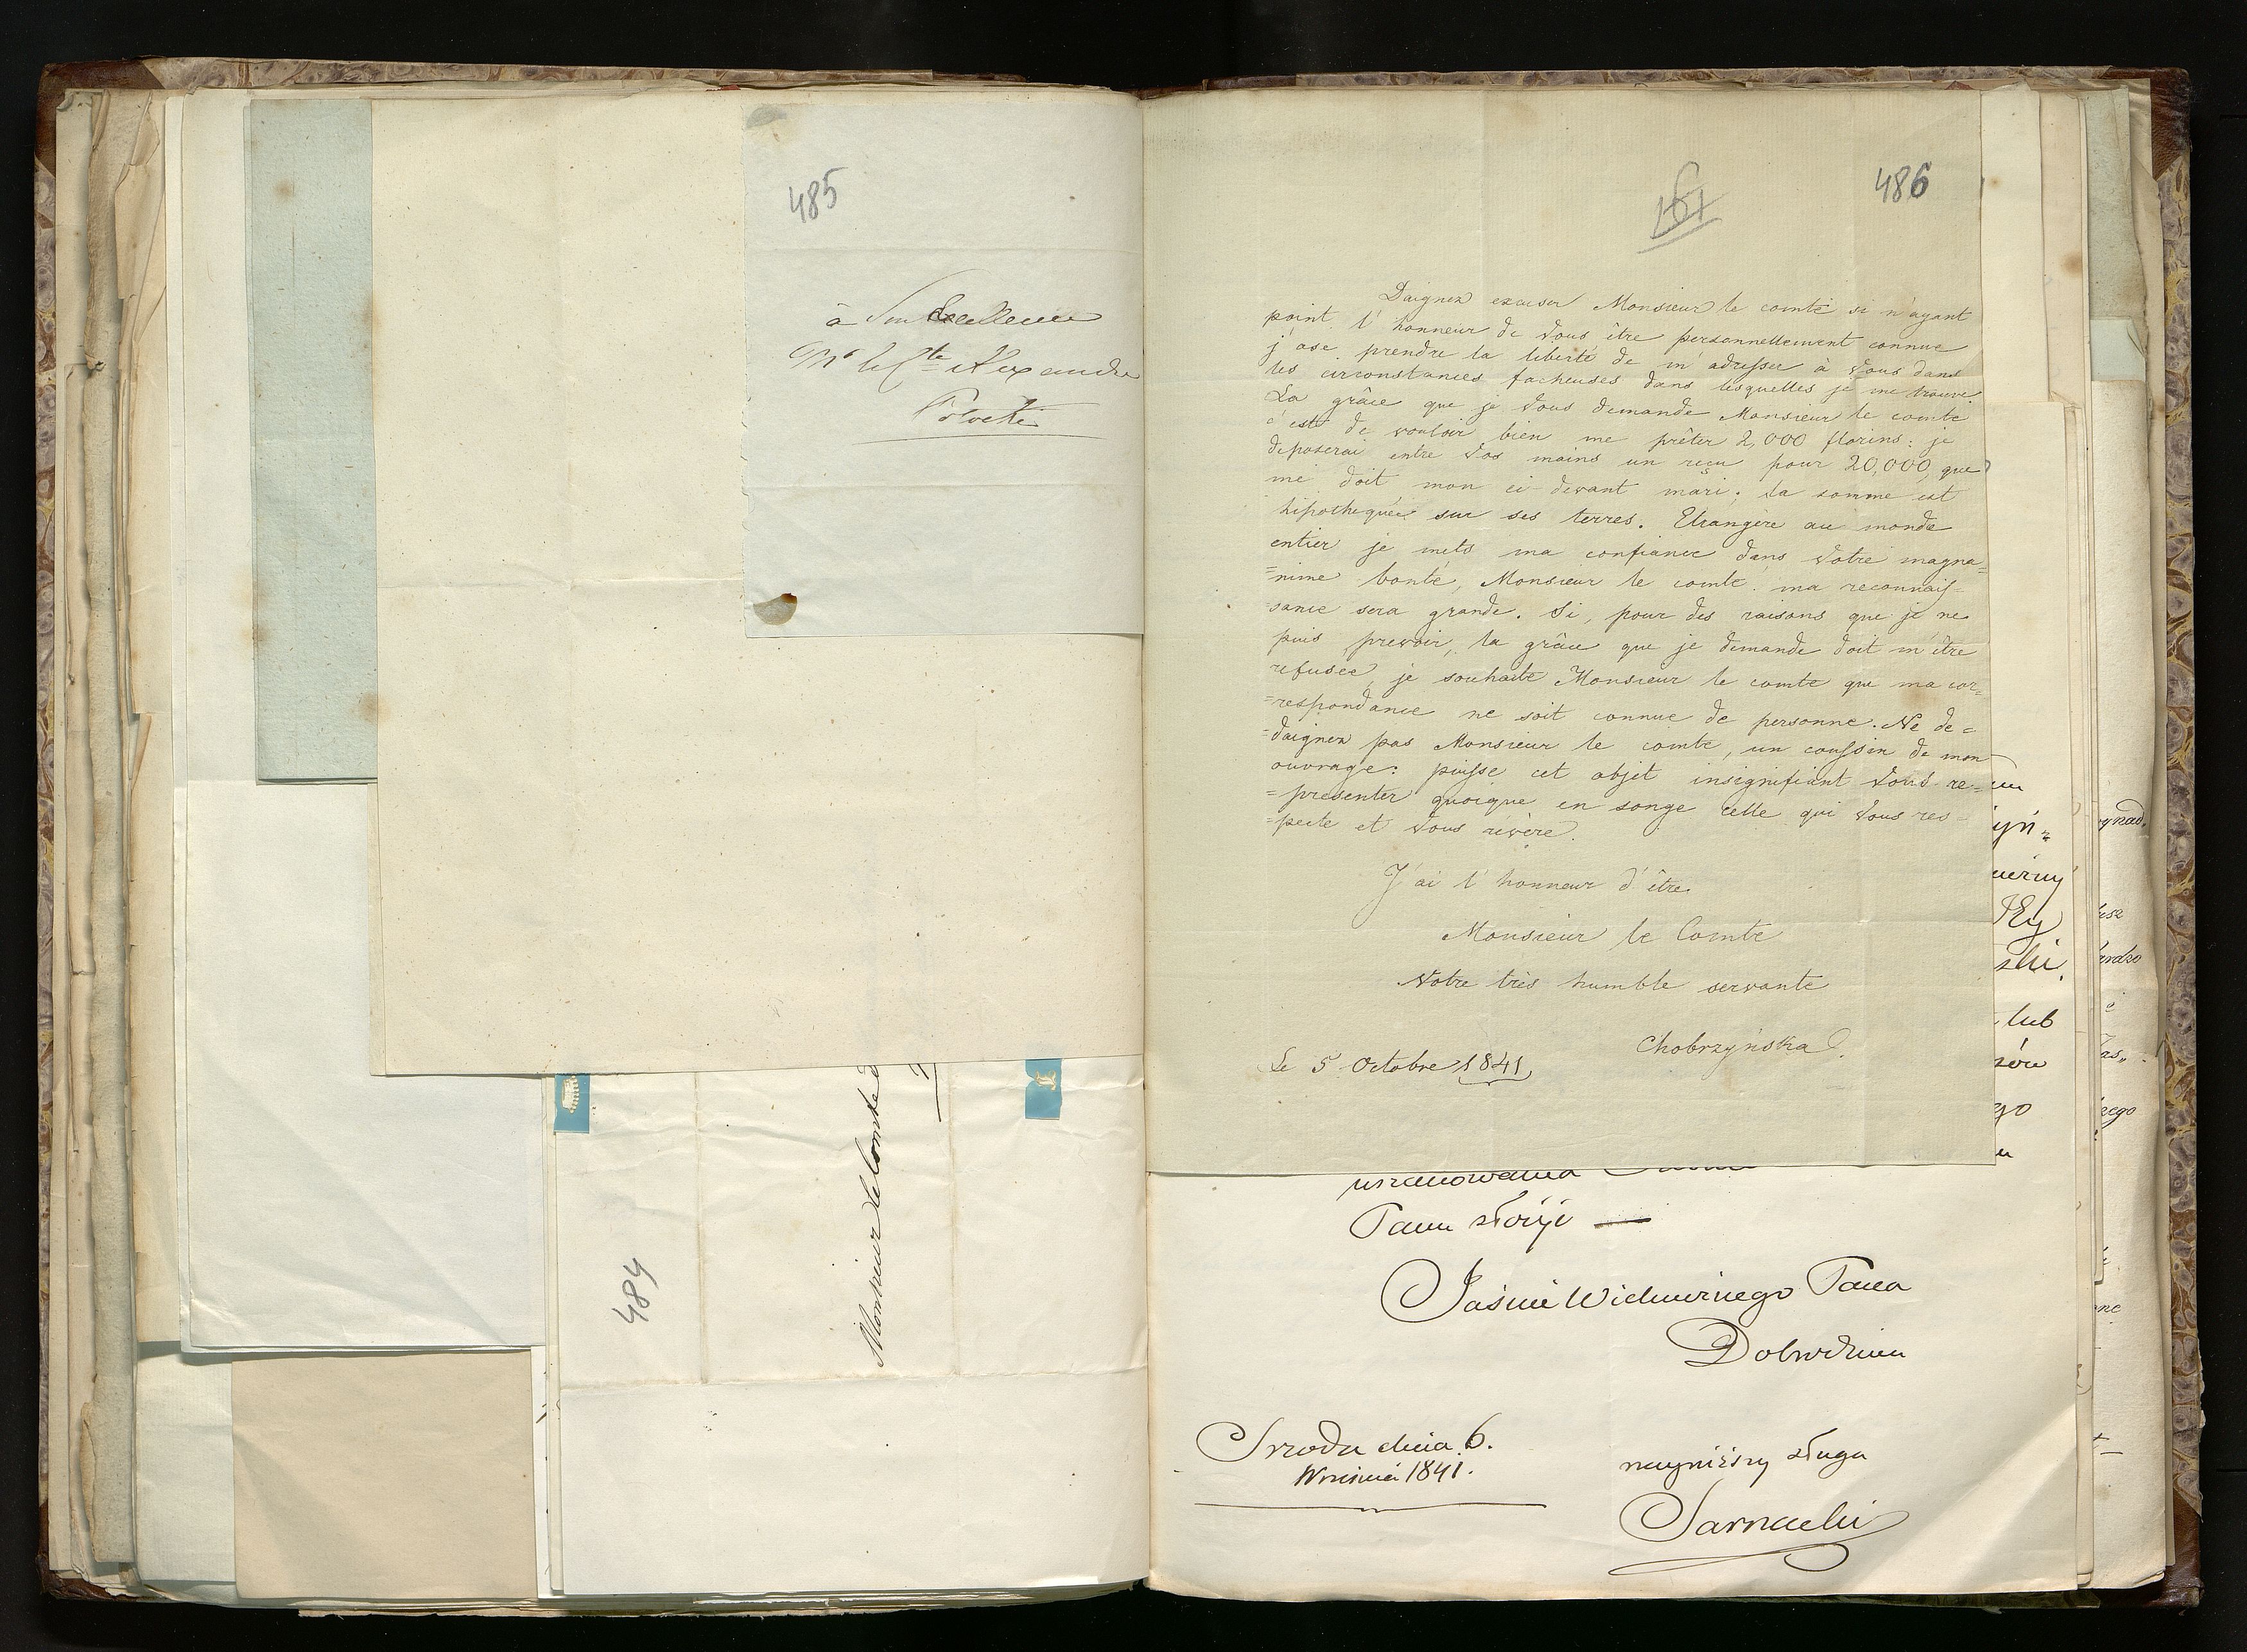 485
à Son Excellence
Mr le Cte Alexandre
Potocki
484
Monsieur le Comte
486
161
Daignez excuser Monsieur le comte si n'ayant
point l'honneur de Vous être personnellement connue
j'ose prendre la liberté de m'adresser à Vous dans
les circonstances facheuses dans lesquelles je me trouve.
La grâce que je Vous demande Monsieur le comte
c'est de vouloir bien me prêter 2,000 florins: je
deposerai entre Vos mains un reçu pour 20,000, que
me doit mon ci-devant mari; la somme est
hipothequée sur ses terres. Etrangère au monde
entier je mets ma confiance dans Votre magna=
=nime bonté, Monsieur le comte. ma reconnais=
=sance sera grande. Si, pour des raisons que je ne
puis prevoir, la grâce que je demande doit m'être
refusée, je souhaite Monsieur le comte que ma cor=
=respondance ne soit connue de personne. Ne de=
=daignez pas Monsieur le comte, un coussin de mon
ouvrage: puisse cet objet insignifiant Vous re=
=presenter quoique en songe celle qui Vous res=
=pecte et Vous révère.
J'ai l'honneur d'être
Monsieur le Comte
Votre très humble servante
Chobrzyńska
Le 5 Octobre 1841
uszanowania
Panu słóżę —
Jaśnie Wielmożnego Pana
Dobrodzieia
Srzoda dnia 6.
Września 1841.
nayniższy sługa
Sarnacki
lub